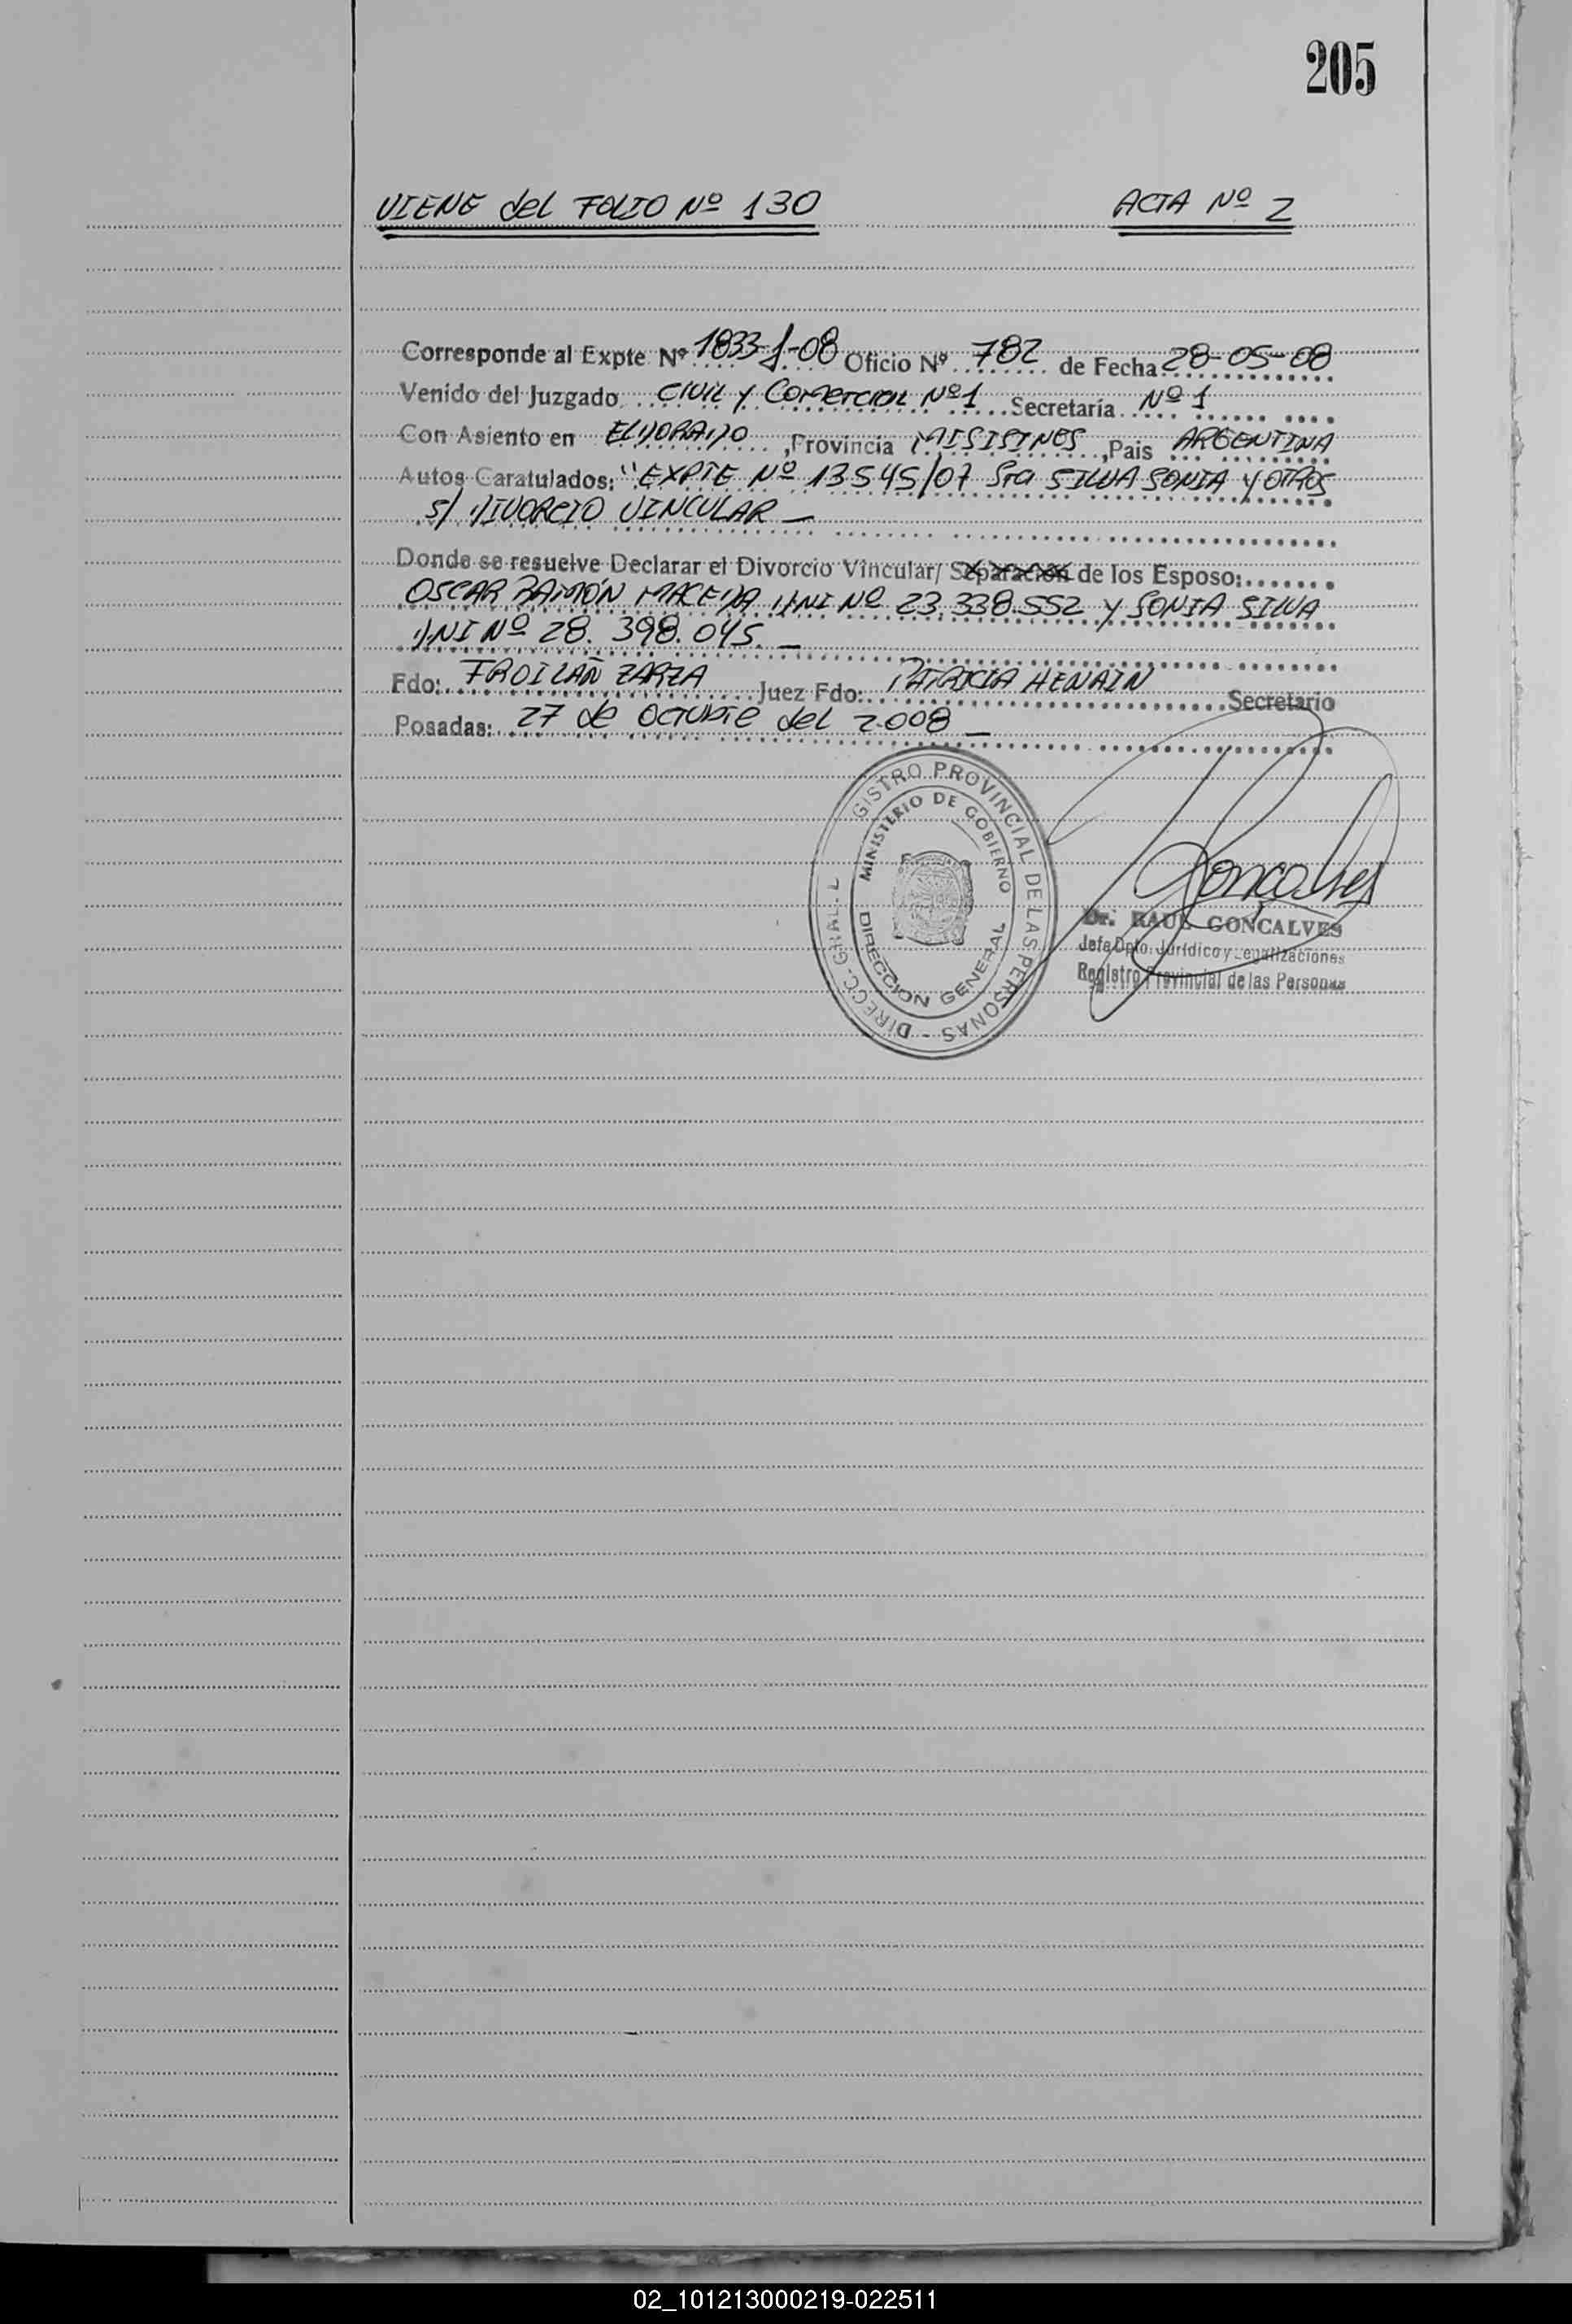 205
VIENE del FOLIO Nº 130 ACTA Nº 2
Corresponde al Expte Nº 1833-J-08 Oficio Nº 782 de Fecha: 28-05-08
Venido del Juzgado CIVIL y COMERCIAL Nº1 Secretaría Nº 1
Con Asiento en ELDORADO, Provincia MISISINES, Pais ARGENTINA
Autos Caratulados: "EXPTE Nº 13545/07 Sra SILVA SONIA Y OTROS
S/ DIVORCIO VINCULAR_
Donde se resuelve Declarar el Divorcio Vincular/ Separación de los Esposo:
OSCAR RAMÓN MACEDA DNI Nº 23.338.552 y SONIA SILVA
DNI Nº 28.398.045._
Fdo: FROILAÑ ZARZA Juez Fdo: PATRICIA HENAIN Secretario
Posadas: 27 de OCTUBRE del 2.008_
GISTRO PROVINCIAL DE LAS PERSONAS - DIRECC. GRAL.
MINISTERIO DE GOBIERNO
DIRECCION GENERAL
Gonçalves
Dr. RAUL GONÇALVES
Jefe Dpto. Jurídico y Legalizaciones
Registro Provincial de las Personas
02_101213000219-022511